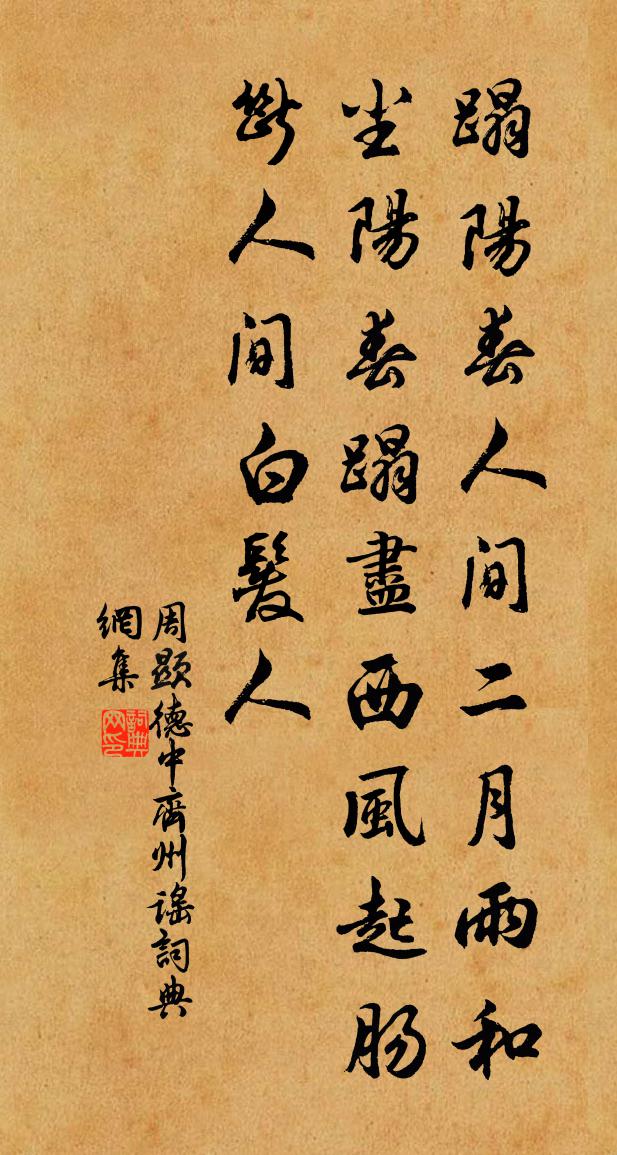 蹋陽春人間二月雨和
塵陽春蹋盡西風起腸
斷人間白髮人
周顯德中齊州謠詞典
網集
詞典
网印